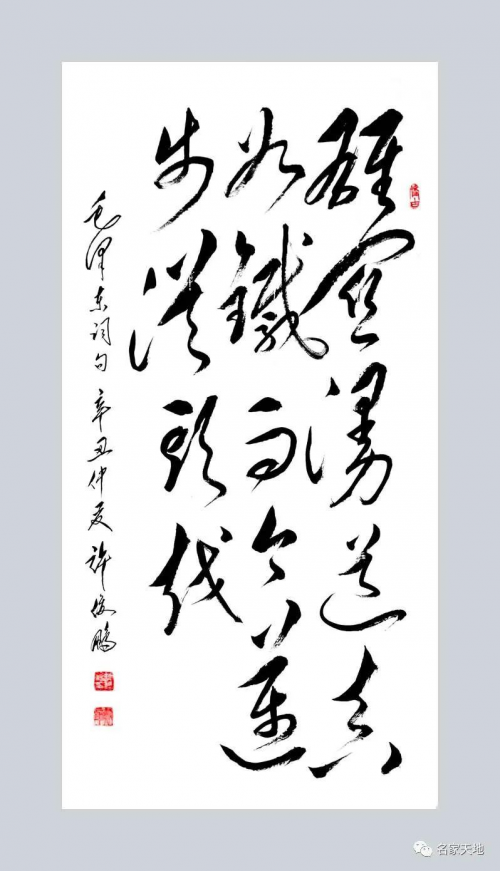 雄關漫道真
如鐵而今邁
步從頭越
毛泽东词句 辛丑仲夏 许俊鹏
名家天地